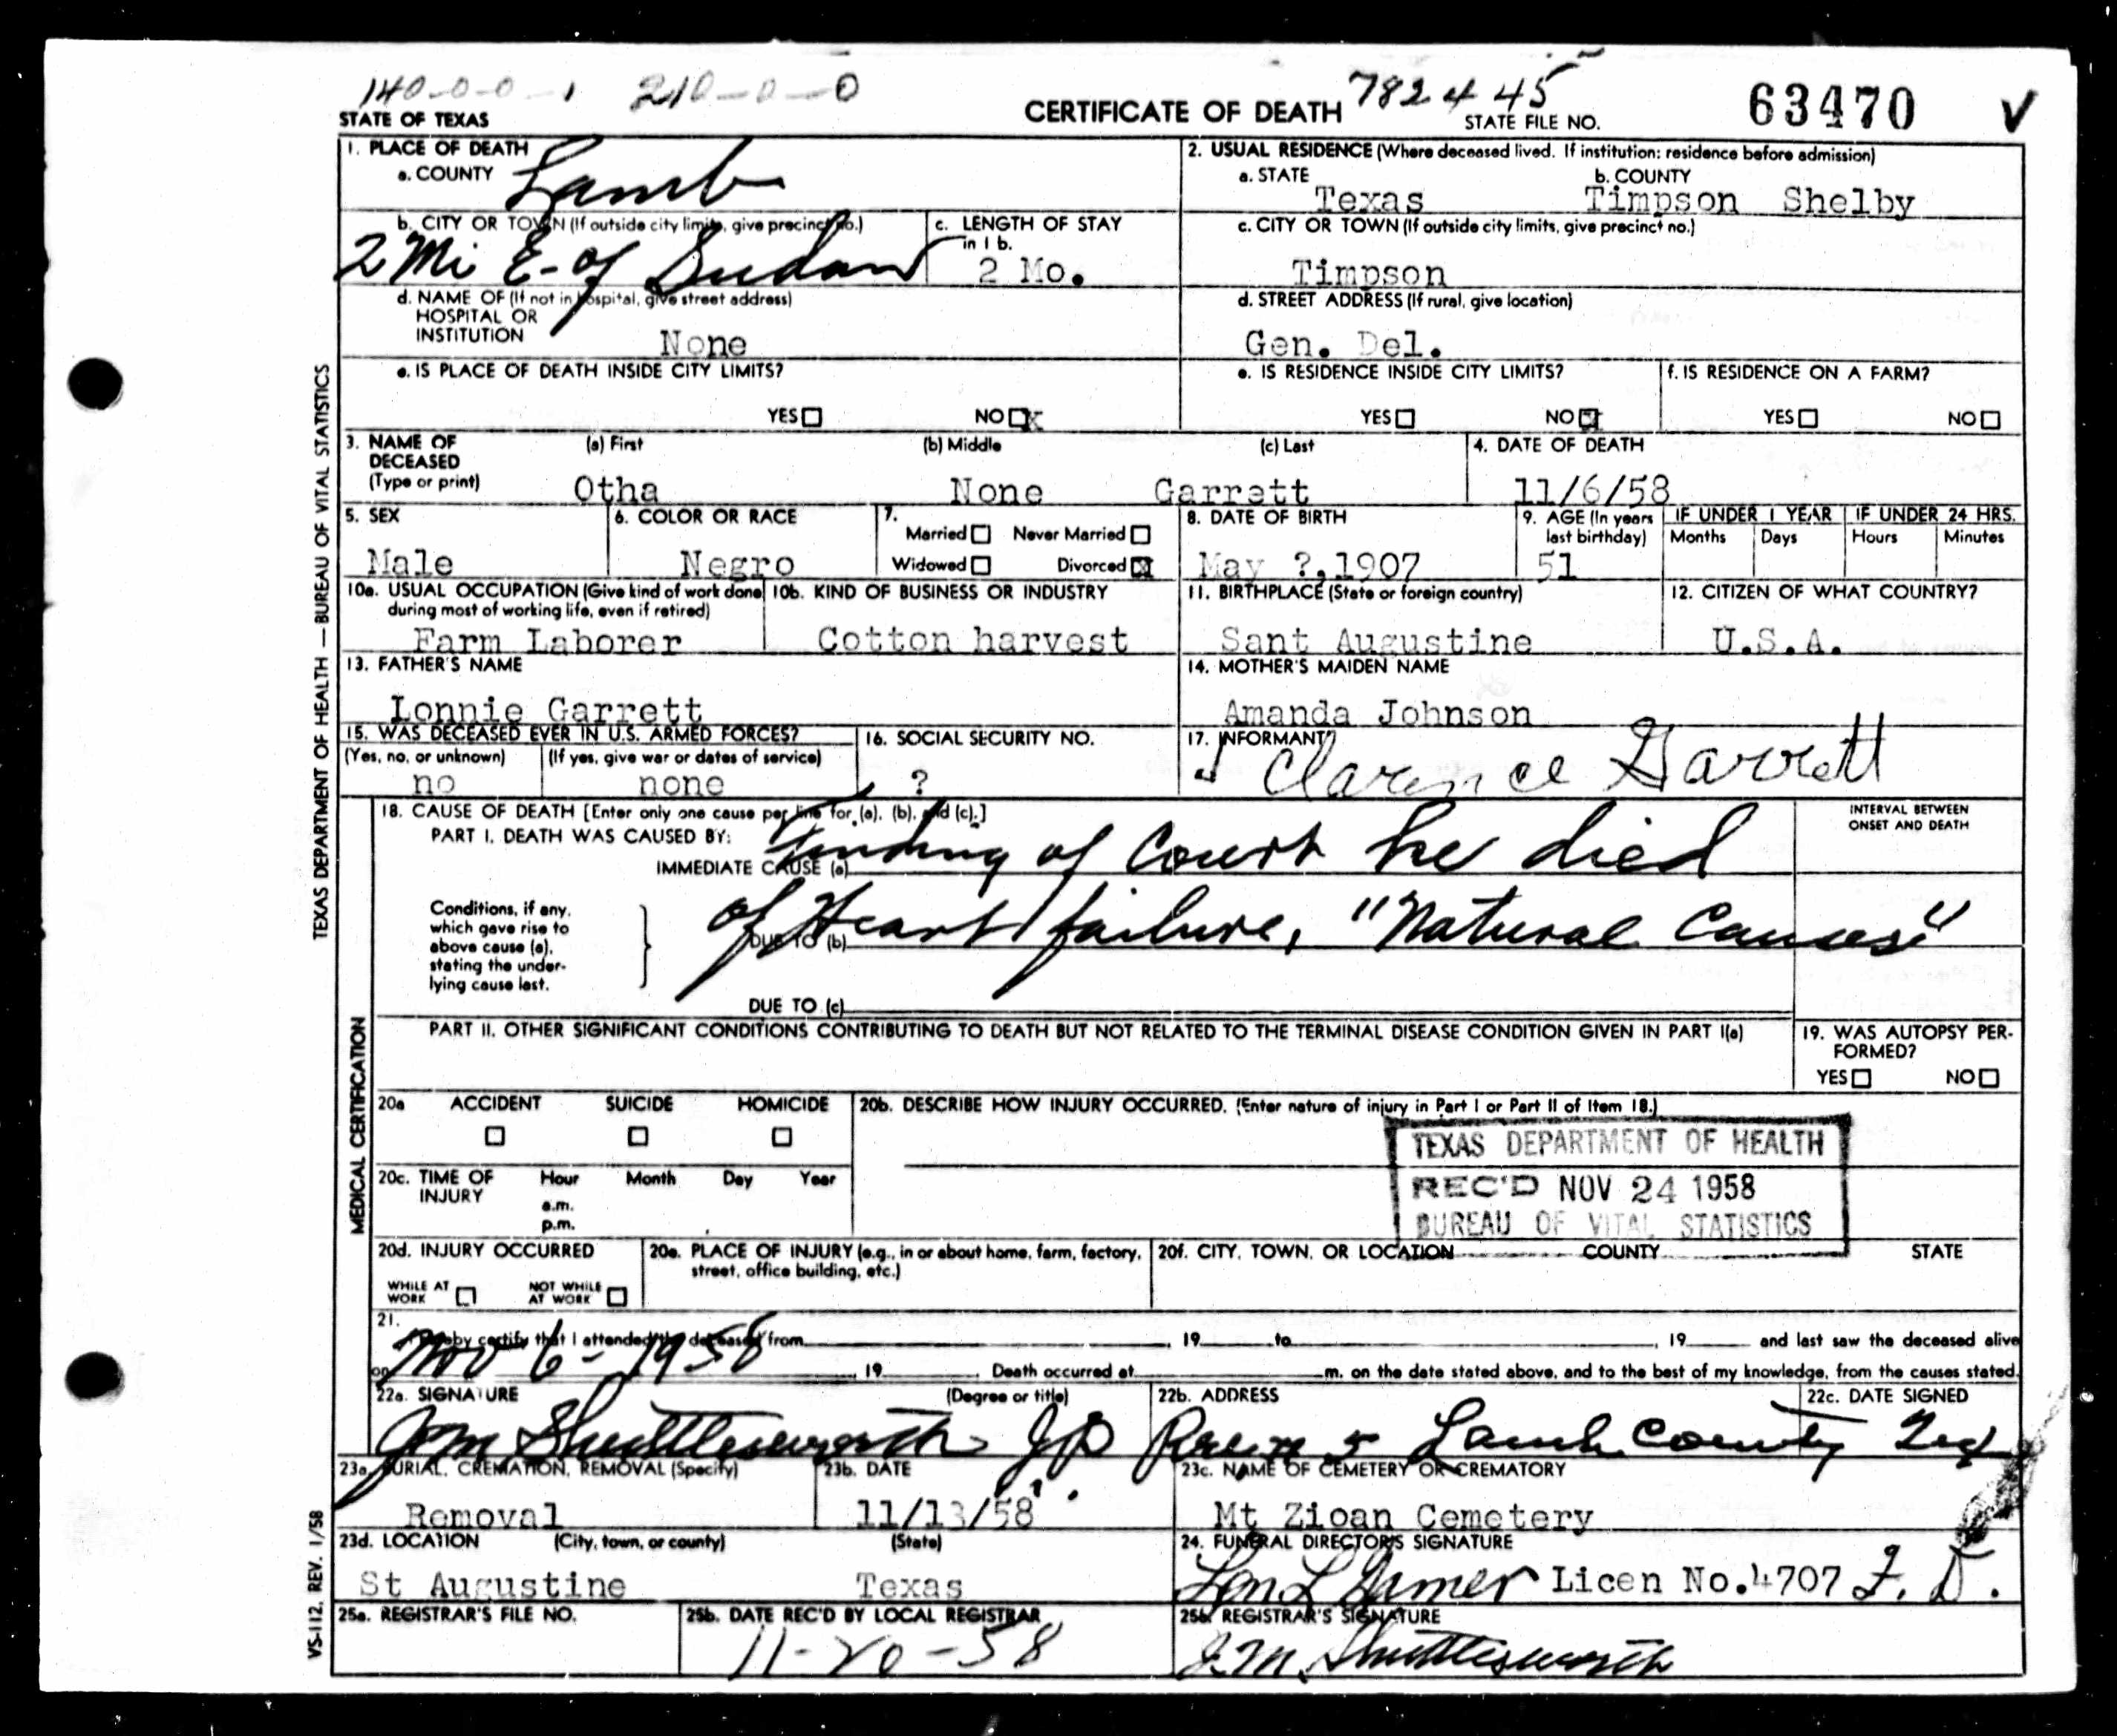 140-0-0-1 210-0-0
782 4 45
STATE OF TEXAS CERTIFICATE OF DEATH STATE FILE NO. 63470 ✓
1. PLACE OF DEATH
a. COUNTY Lamb
2. USUAL RESIDENCE (Where deceased lived. If institution: residence before admission)
a. STATE b. COUNTY
Texas Timpson Shelby
b. CITY OR TOWN (If outside city limits, give precinct no.)
2 Mi E. of Sudan
c. LENGTH OF STAY
in 1 b.
2 Mo.
c. CITY OR TOWN (If outside city limits, give precinct no.)
Timpson
d. NAME OF (If not in hospital, give street address)
HOSPITAL OR
INSTITUTION None
d. STREET ADDRESS (If rural, give location)
Gen. Del.
e. IS PLACE OF DEATH INSIDE CITY LIMITS?
YES☐ NO☒
e. IS RESIDENCE INSIDE CITY LIMITS?
YES☐ NO☒
f. IS RESIDENCE ON A FARM?
YES☐ NO☐
3. NAME OF (a) First (b) Middle (c) Last
DECEASED
(Type or print) Otha None Garrett
4. DATE OF DEATH
11/6/58
5. SEX
Male
6. COLOR OR RACE
Negro
7.
Married☐ Never Married☐
Widowed☐ Divorced☒
8. DATE OF BIRTH
May ?,1907
9. AGE (In years
last birthday)
51
IF UNDER 1 YEAR IF UNDER 24 HRS.
Months Days Hours Minutes
10a. USUAL OCCUPATION (Give kind of work done
during most of working life, even if retired)
Farm Laborer
10b. KIND OF BUSINESS OR INDUSTRY
Cotton harvest
11. BIRTHPLACE (State or foreign country)
Sant Augustine
12. CITIZEN OF WHAT COUNTRY?
U.S.A.
13. FATHER'S NAME
Lonnie Garrett
14. MOTHER'S MAIDEN NAME
Amanda Johnson
15. WAS DECEASED EVER IN U.S. ARMED FORCES?
(Yes, no, or unknown) (If yes, give war or dates of service)
no none
16. SOCIAL SECURITY NO.
?
17. INFORMANT
Clarence Garrett
18. CAUSE OF DEATH [Enter only one cause per line for (a), (b), and (c).]
PART I. DEATH WAS CAUSED BY:
IMMEDIATE CAUSE (a) Finding of Court he died
INTERVAL BETWEEN
ONSET AND DEATH
Conditions, if any,
which gave rise to
above cause (a),
stating the under-
lying cause last.
DUE TO (b) of Heart failure, "Natural Causes"
DUE TO (c)
PART II. OTHER SIGNIFICANT CONDITIONS CONTRIBUTING TO DEATH BUT NOT RELATED TO THE TERMINAL DISEASE CONDITION GIVEN IN PART I(a)
19. WAS AUTOPSY PER-
FORMED?
YES☐ NO☐
20a ACCIDENT SUICIDE HOMICIDE
☐ ☐ ☐
20b. DESCRIBE HOW INJURY OCCURRED. (Enter nature of injury in Part I or Part II of Item 18.)
TEXAS DEPARTMENT OF HEALTH
REC'D NOV 24 1958
BUREAU OF VITAL STATISTICS
20c. TIME OF Hour Month Day Year
INJURY a.m.
p.m.
20d. INJURY OCCURRED
WHILE AT WORK ☐ NOT WHILE AT WORK ☐
20e. PLACE OF INJURY (e.g., in or about home, farm, factory,
street, office building, etc.)
20f. CITY, TOWN, OR LOCATION COUNTY STATE
21.
I hereby certify that I attended the deceased from , 19 to , 19 and last saw the deceased alive
on Nov 6 - 1958 , 19 . Death occurred at m. on the date stated above, and to the best of my knowledge, from the causes stated.
22a. SIGNATURE (Degree or title)
J M Shuttlesworth J.P.
22b. ADDRESS
Precn 5 Lamb County Tex
22c. DATE SIGNED
23a. BURIAL, CREMATION, REMOVAL (Specify)
Removal
23b. DATE
11/13/58
23c. NAME OF CEMETERY OR CREMATORY
Mt Zioan Cemetery
23d. LOCATION (City, town, or county) (State)
St Augustine Texas
24. FUNERAL DIRECTOR'S SIGNATURE
Licen No.4707 F. D.
25a. REGISTRAR'S FILE NO.
25b. DATE REC'D BY LOCAL REGISTRAR
11-20-58
25c. REGISTRAR'S SIGNATURE
J.M. Shuttlesworth
TEXAS DEPARTMENT OF HEALTH — BUREAU OF VITAL STATISTICS
MEDICAL CERTIFICATION
VS-112. REV. 1/58